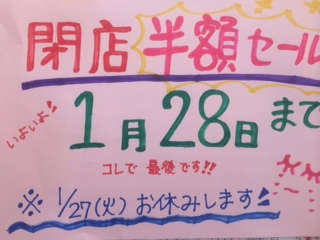 閉店半額セール
いよいよ!!
1月28日まで
コレで 最後です!!
※ 1/27(火) お休みします!!